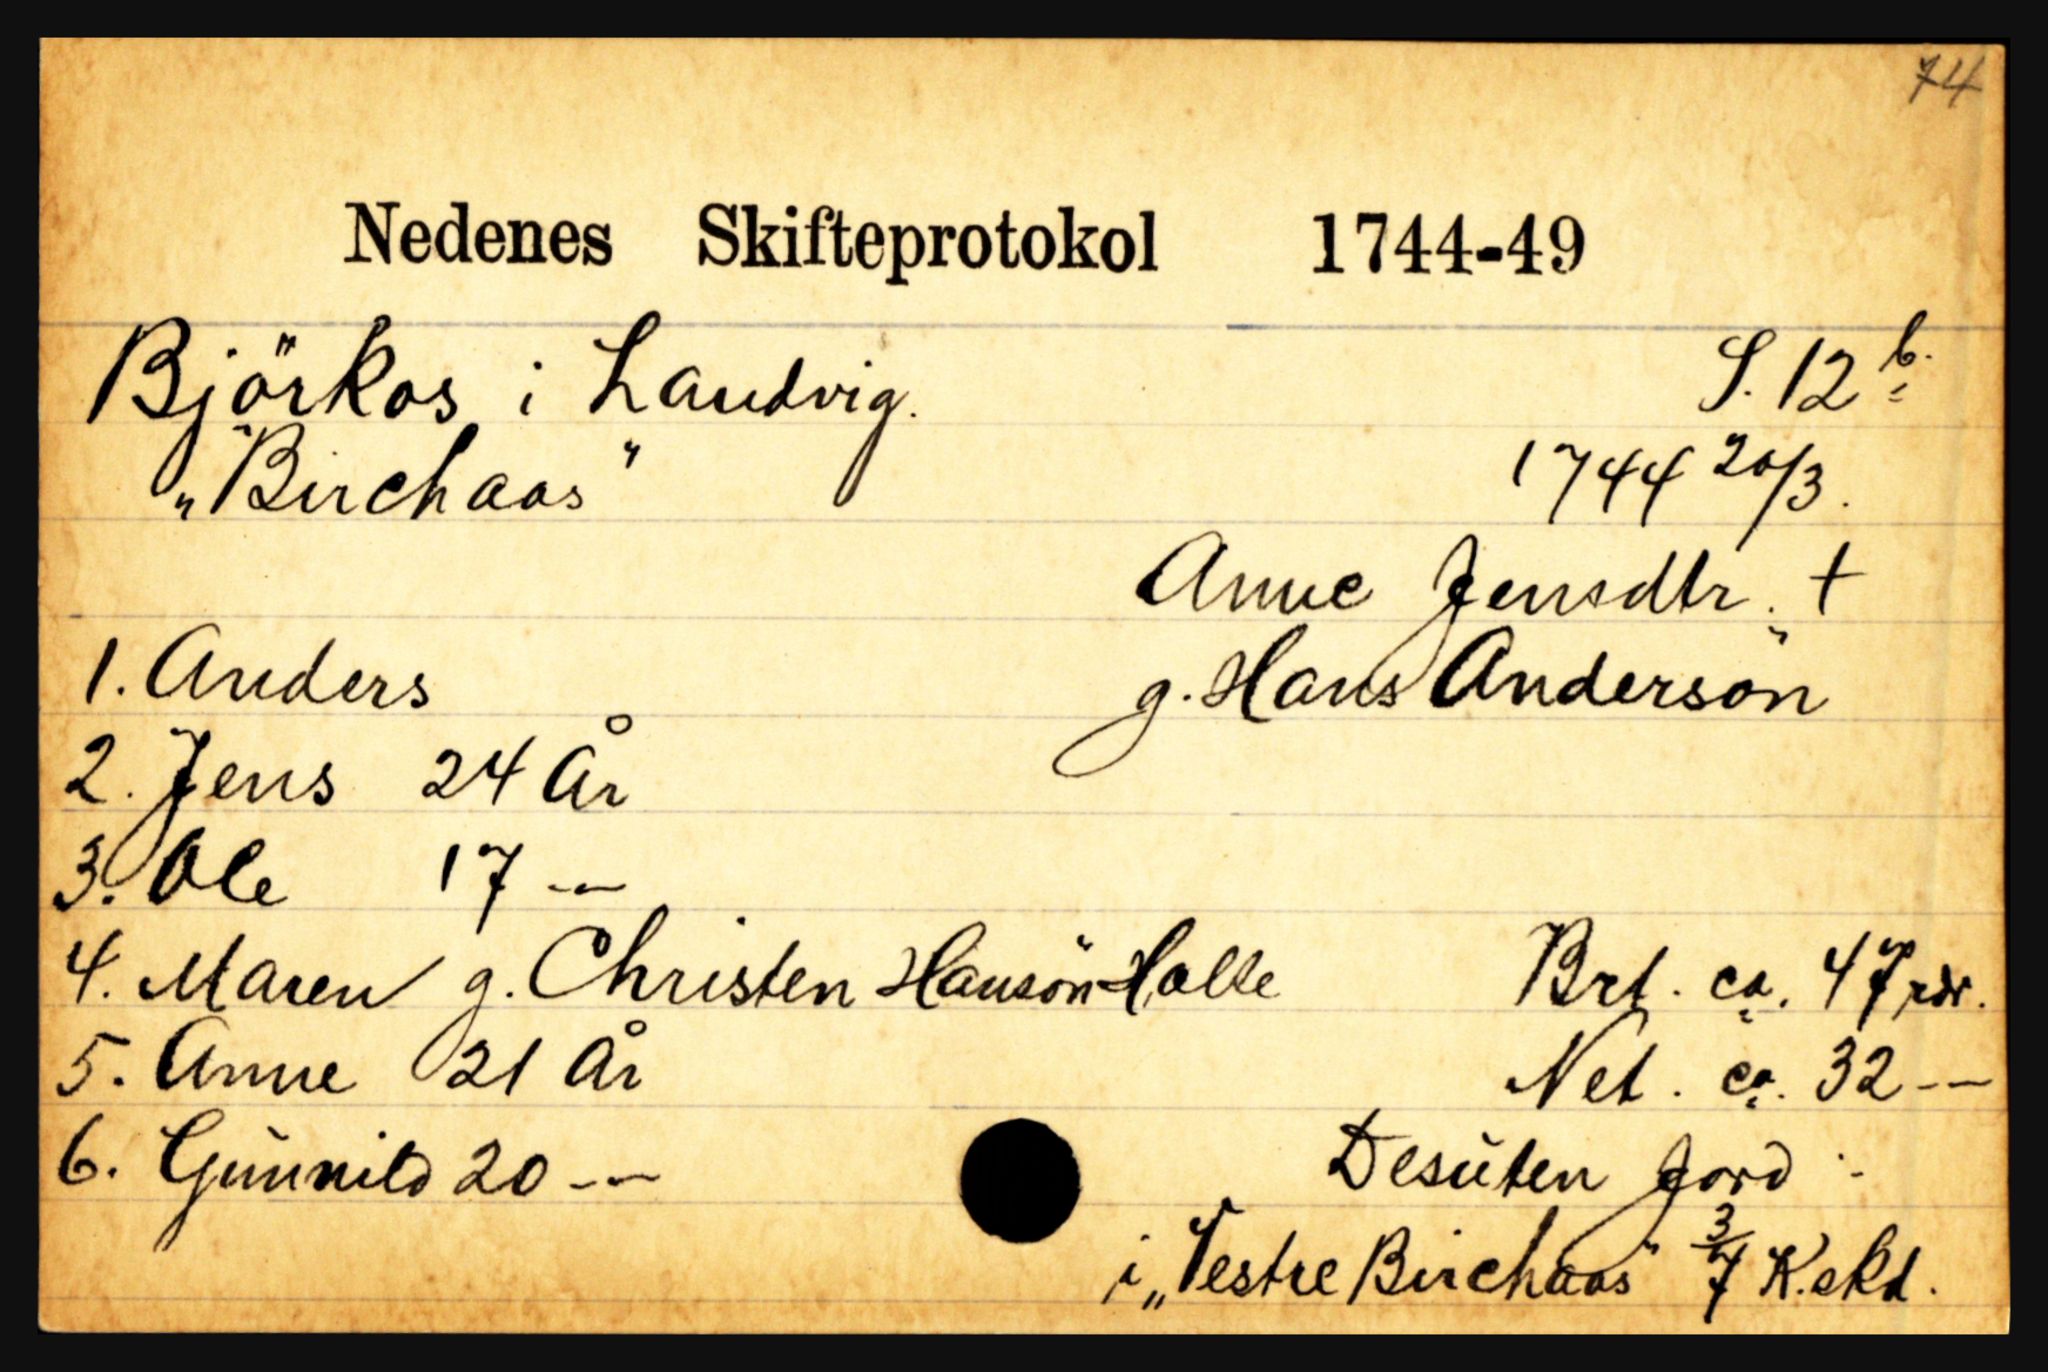 74
Nedenes Skifteprotokol 1744-49
Björkos i Landvig. S. 12 b.
"Birchaas" 1744 20/3.
Anne Jensdtr. †
1. Anders g. Hans Andersön
2. Jens 24 År
3. Ole 17 —
4. Maren g. Christen Hansön Holte Brt. ca. 47 rdr.
5. Anne 21 År Net. ca. 32 —
6. Gunnild 20 — Desuten Jord :
i "Vestre Birchaas" 3/7 K.skd.